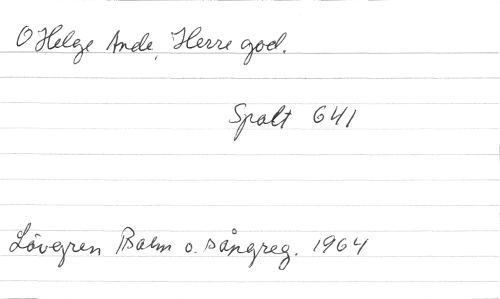 O Helge Ande, Herre god.
Spalt 641
Lövgren Psalm o. sångreg. 1964